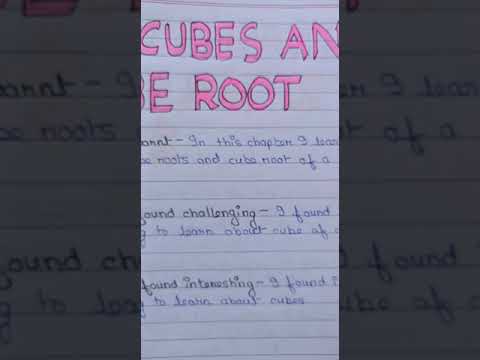 CUBES AN
BE ROOT
In this chapter I lear
be roots and cube root of a
found challenging - I found
g to learn about cube of a
found interesting - I found i
g to learn about cubes